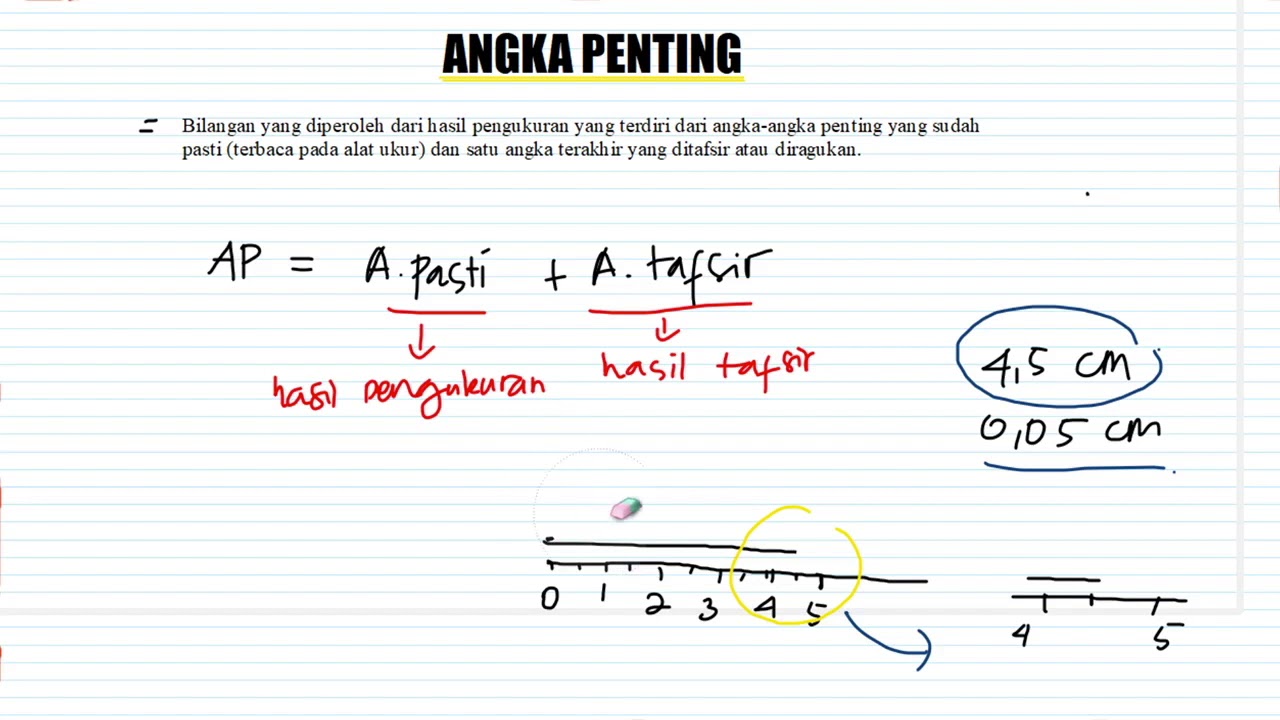 ANGKA PENTING
= Bilangan yang diperoleh dari hasil pengukuran yang terdiri dari angka-angka penting yang sudah
pasti (terbaca pada alat ukur) dan satu angka terakhir yang ditafsir atau diragukan.
AP = A. pasti + A. tafsir
hasil pengukuran
hasil tafsir
4,5 cm
0,05 cm
0 1 2 3 4 5
4 5